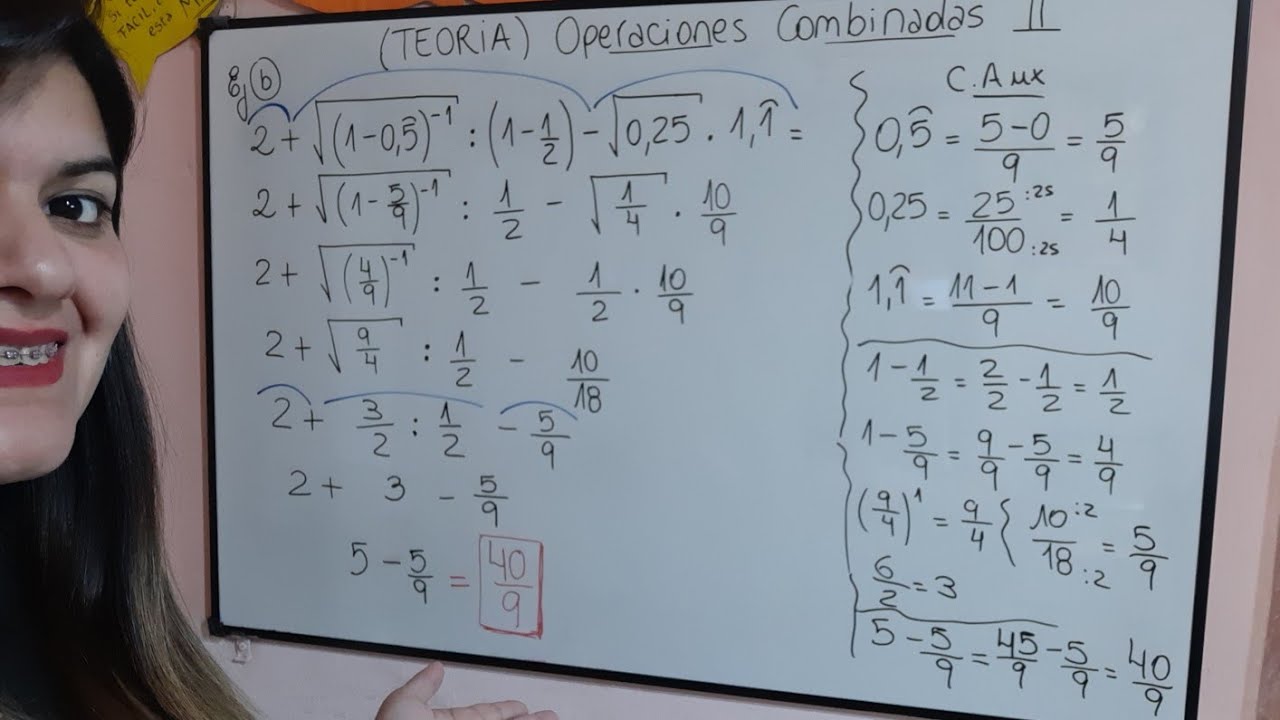 FACIL,
esta
(TEORIA) Operaciones Combinadas II
Ej b
2 + √((1-0,5̂)⁻¹) : (1-1/2) - √0,25 . 1,1̂ =
2 + √((1-5/9)⁻¹) : 1/2 - √(1/4) . 10/9
2 + √((4/9)⁻¹) : 1/2 - 1/2 . 10/9
2 + √(9/4) : 1/2 - 10/18
2 + 3/2 : 1/2 - 5/9
2 + 3 - 5/9
5 - 5/9 = 40/9
C. Aux
0,5̂ = (5-0)/9 = 5/9
0,25 = 25:25/100:25 = 1/4
1,1̂ = (11-1)/9 = 10/9
1 - 1/2 = 2/2 - 1/2 = 1/2
1 - 5/9 = 9/9 - 5/9 = 4/9
(9/4)¹ = 9/4 { 10:2/18:2 = 5/9
6/2 = 3
5 - 5/9 = 45/9 - 5/9 = 40/9